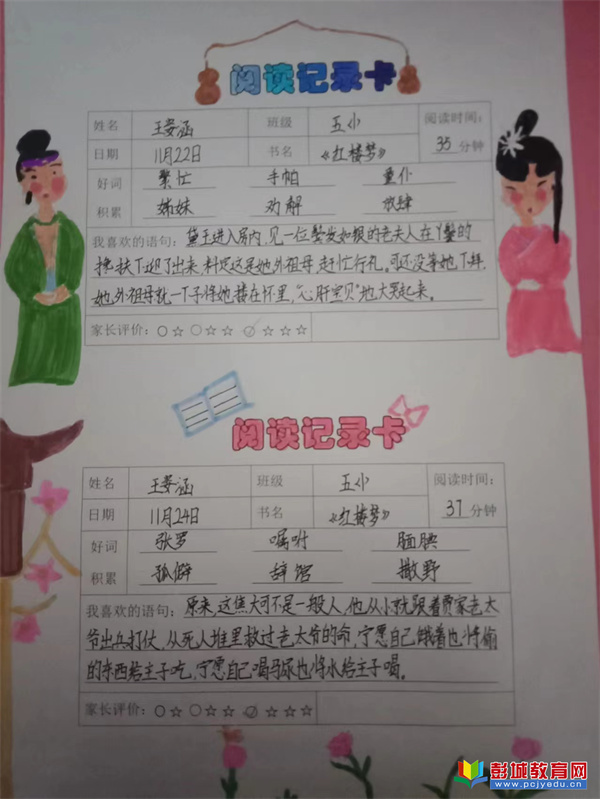 阅读记录卡
姓名 王晏涵 班级 五小 阅读时间:
日期 11月22日 书名 《红楼梦》 35 分钟
好词 繁忙 手帕 童仆
积累 姊妹 劝解 放肆
我喜欢的语句: 黛玉进入房内,见一位鬓发如银的老夫人在丫鬟的
搀扶下迎了出来,料定这是她外祖母,赶忙行礼。可还没等她下拜,
她外祖母就一下子将她搂在怀里,“心肝宝贝”地大哭起来。
家长评价: ○☆ ○☆☆ ○☆☆☆
阅读记录卡
姓名 王晏涵 班级 五小 阅读时间:
日期 11月24日 书名 《红楼梦》 37 分钟
好词 张罗 嘱咐 腼腆
积累 孤僻 辞馆 撒野
我喜欢的语句: 原来,这焦大可不是一般人,他从小就跟着贾家老太
爷出兵打仗,从死人堆里救过老太爷的命,宁愿自己饿着也将偷
的东西给主子吃,宁愿自己喝马尿也将水给主子喝。
家长评价: ○☆ ○☆☆ ○☆☆☆
彭城教育网
www.pcjyedu.cn